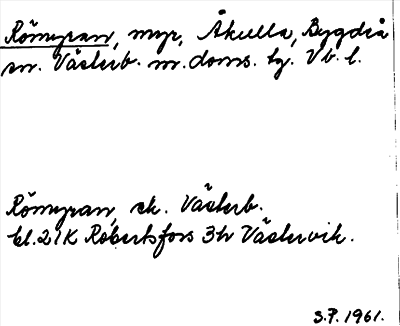 Römyran, myr, Åkulla, Bygdeå
sn. Västerb. n. doms. tg. Vb. l.
Römyran, sk. Västerb.
bl. 21K Robertsfors 3h Västervik.
S.F. 1961.